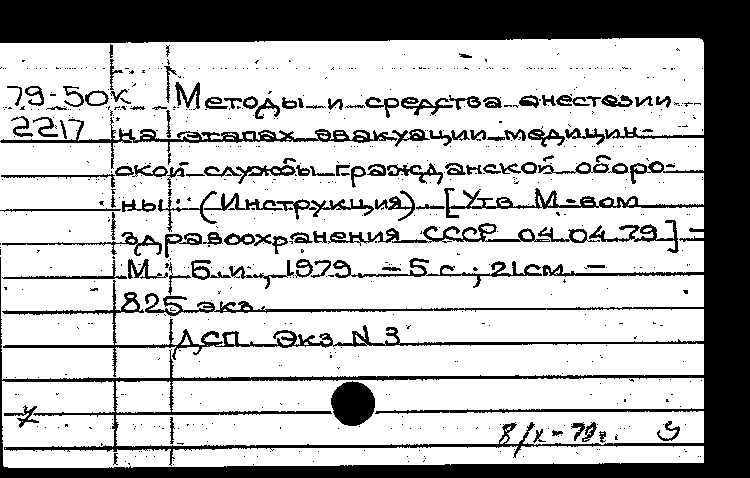 79-50к Методы и средства анестезии
2217 на этапах эвакуации медицин-
ской службы гражданской оборо-
ны: (Инструкция). [Утв. М-вом
здравоохранения СССР 04.04.79] -
М.: Б.и., 1979. - 5 с.; 21см. -
825 экз.
ДСП. Экз. N 3
8/X-79г.